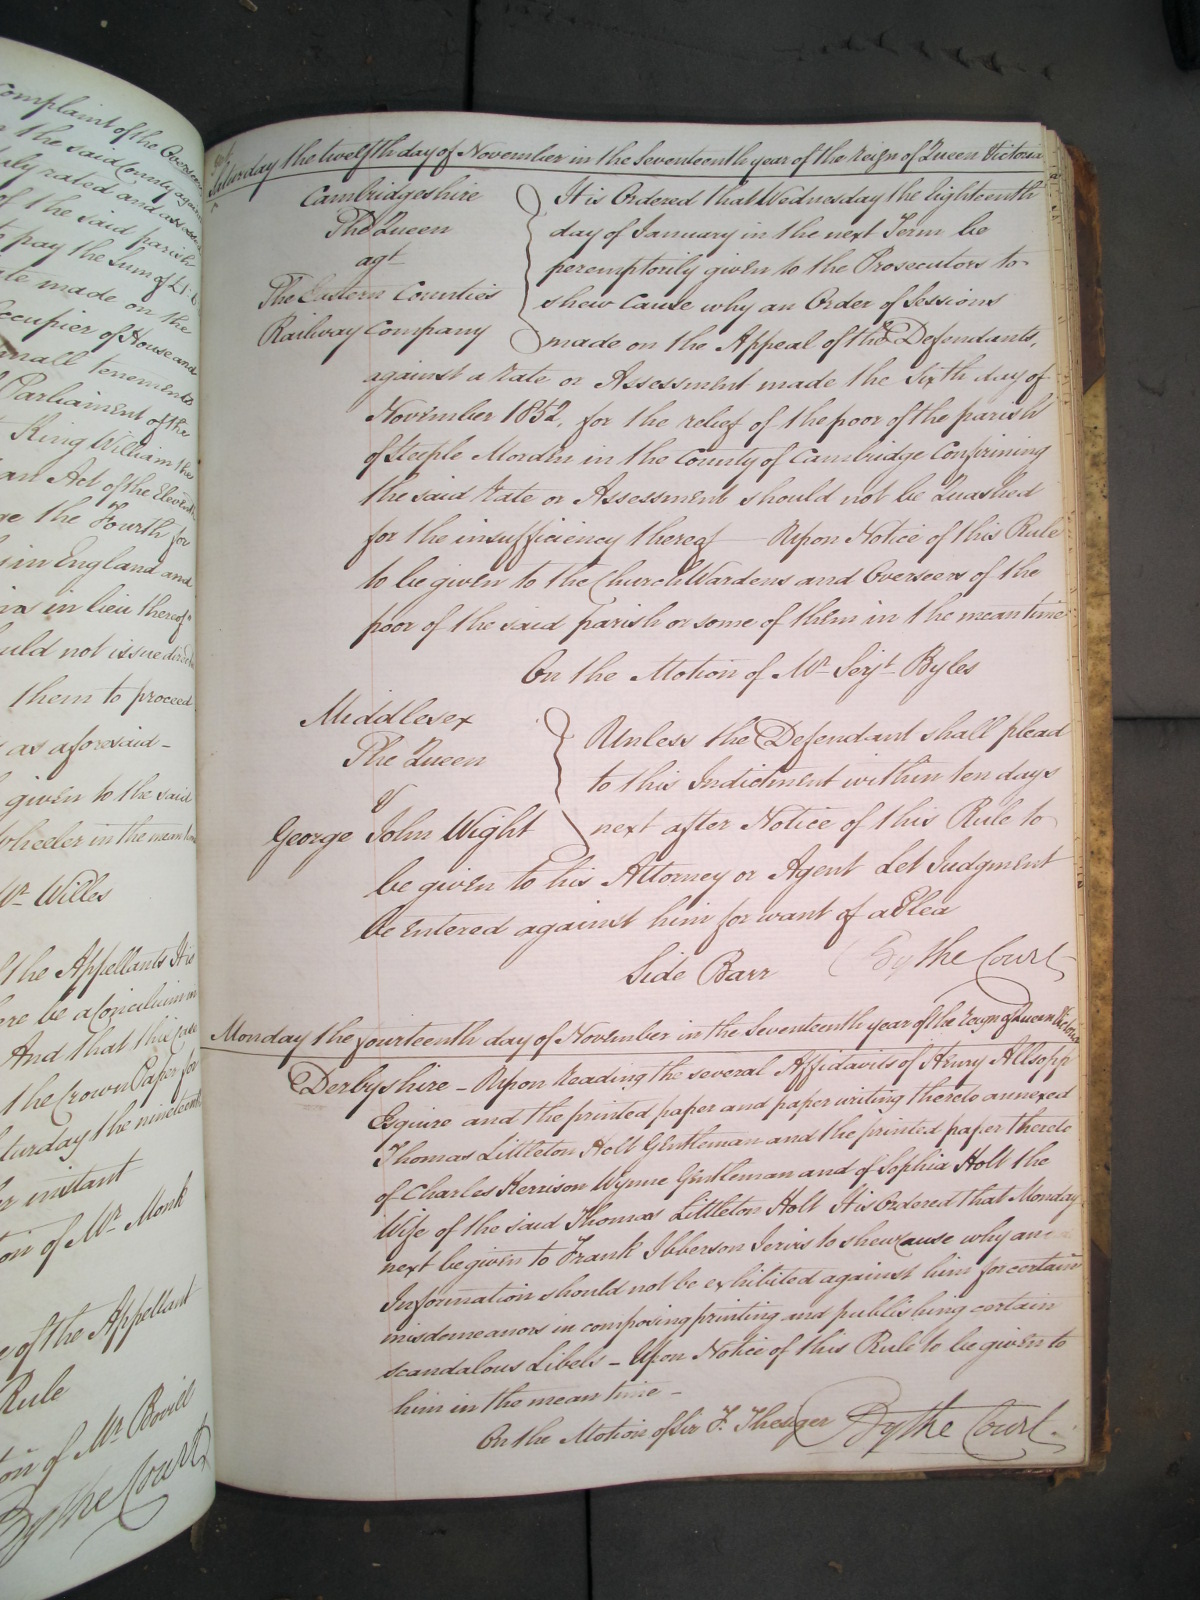 Complaint of the Overseers
the said County against
duly rated and assessed
of the said parish
to pay the sum of £1.
made on the
Occupier of House and
small tenements
Parliament of the
King William the
an Act of the Eleventh
the Fourth for
in England and
in lieu thereof
should not issue directed
them to proceed
as aforesaid -
given to the said
in the mean time
Mr. Willes
the Appellants It is
there be a Concilium in
And that this case
the Crown Paper for
Saturday the nineteenth
instant
of Mr. Monk
of the Appellant
Rule
of Mr. Bovill
By the Court
Saturday the twelfth day of November in the Seventeenth year of the reign of Queen Victoria
Cambridgeshire
The Queen
agt
The Eastern Counties
Railway Company
It is Ordered that Wednesday the Eighteenth
day of January in the next Term be
peremptorily given to the Prosecutors to
shew Cause why an Order of Sessions
made on the Appeal of the Defendants,
against a rate or Assessment made the Sixth day of
November 1852, for the relief of the poor of the parish
of Steeple Morden in the County of Cambridge Confirming
the said rate or Assessment should not be Quashed
for the insufficiency thereof — Upon Notice of this Rule
to be given to the Church Wardens and Overseers of the
poor of the said parish or some of them in the mean time
On the Motion of Mr. Serjt. Byles
Middlesex
The Queen
v
George John Wight
Unless the Defendant shall plead
to this Indictment within ten days
next after Notice of this Rule to
be given to his Attorney or Agent Let Judgment
be entered against him for want of a Plea
Side Barr By the Court
Monday the fourteenth day of November in the Seventeenth year of the reign of Queen Victoria
Derbyshire - Upon reading the several Affidavits of Henry Allsopp
Esquire and the printed paper and paper writing thereto annexed
Thomas Littleton Holt Gentleman and the printed paper thereto
of Charles Kerrison Wynne Gentleman and of Sophia Holt the
Wife of the said Thomas Littleton Holt It is Ordered that Monday
next be given to Frank Ibberson Jervis to shew cause why an
Information should not be exhibited against him for certain
misdemeanors in composing printing and publishing certain
scandalous Libels - Upon Notice of this Rule to be given to
him in the mean time -
On the Motion of Sir F. Thesiger By the Court